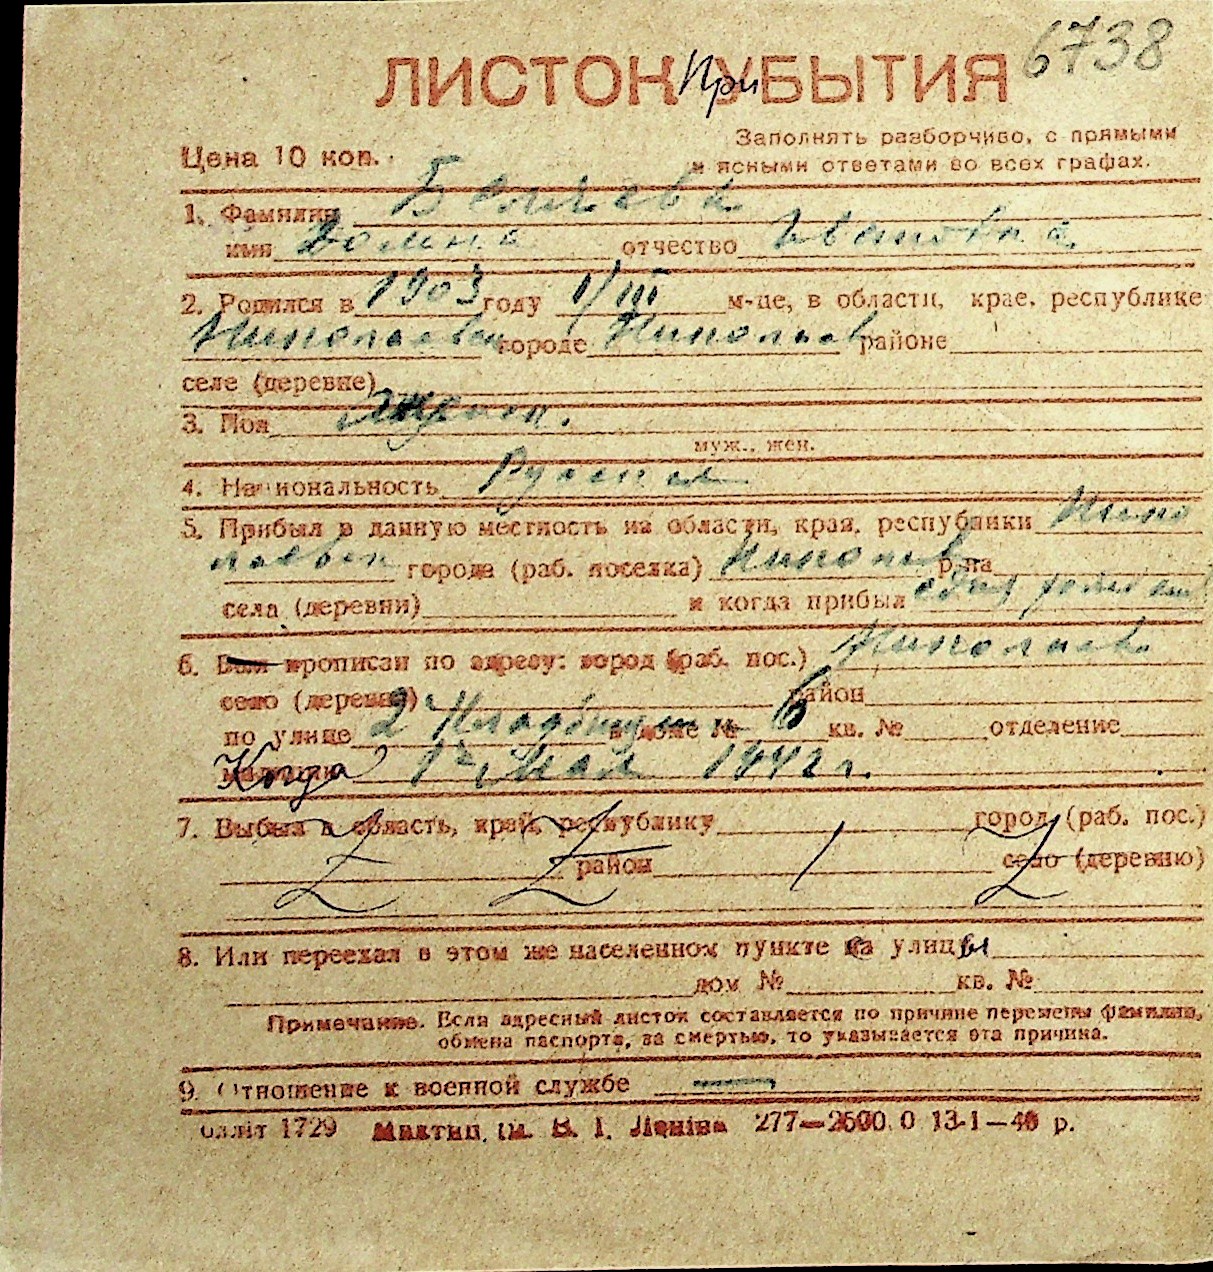 6738
ЛИСТОК При УБЫТИЯ
Цена 10 коп.
Заполнять разборчиво, с прямыми
и ясными ответами во всех графах.
1. Фамилия
имя Домна отчество Ивановна
2. Родился в 1903 году 1/III м-це, в области, крае, республике
Николаевск городе Николаев районе
селе (деревне)
3. Пол
муж., жен.
4. Национальность Русская
5. Прибыл в данную местность из области, края, республики Нико
лаевск города (раб. поселка) Николаев р-на
села (деревни) и когда прибыл
6. Был прописан по адресу: город (раб. пос.) Николаев
село (деревня) район
по улице 2 в доме № 6 кв. № отделение
милиции Когда 1го Мая 1942 г.
7. Выбыл в область, край, республику город (раб. пос.)
район село (деревню)
8. Или переехал в этом же населенном пункте с улицы
дом № кв. №
Примечание. Если адресный листок составляется по причине перемены фамилии,
обмена паспорта, за смертью, то указывается эта причина.
9. Отношение к военной службе —
облліт 1729 Миктип. ім. В. І. Леніна 277—2500.0 13-1—40 р.